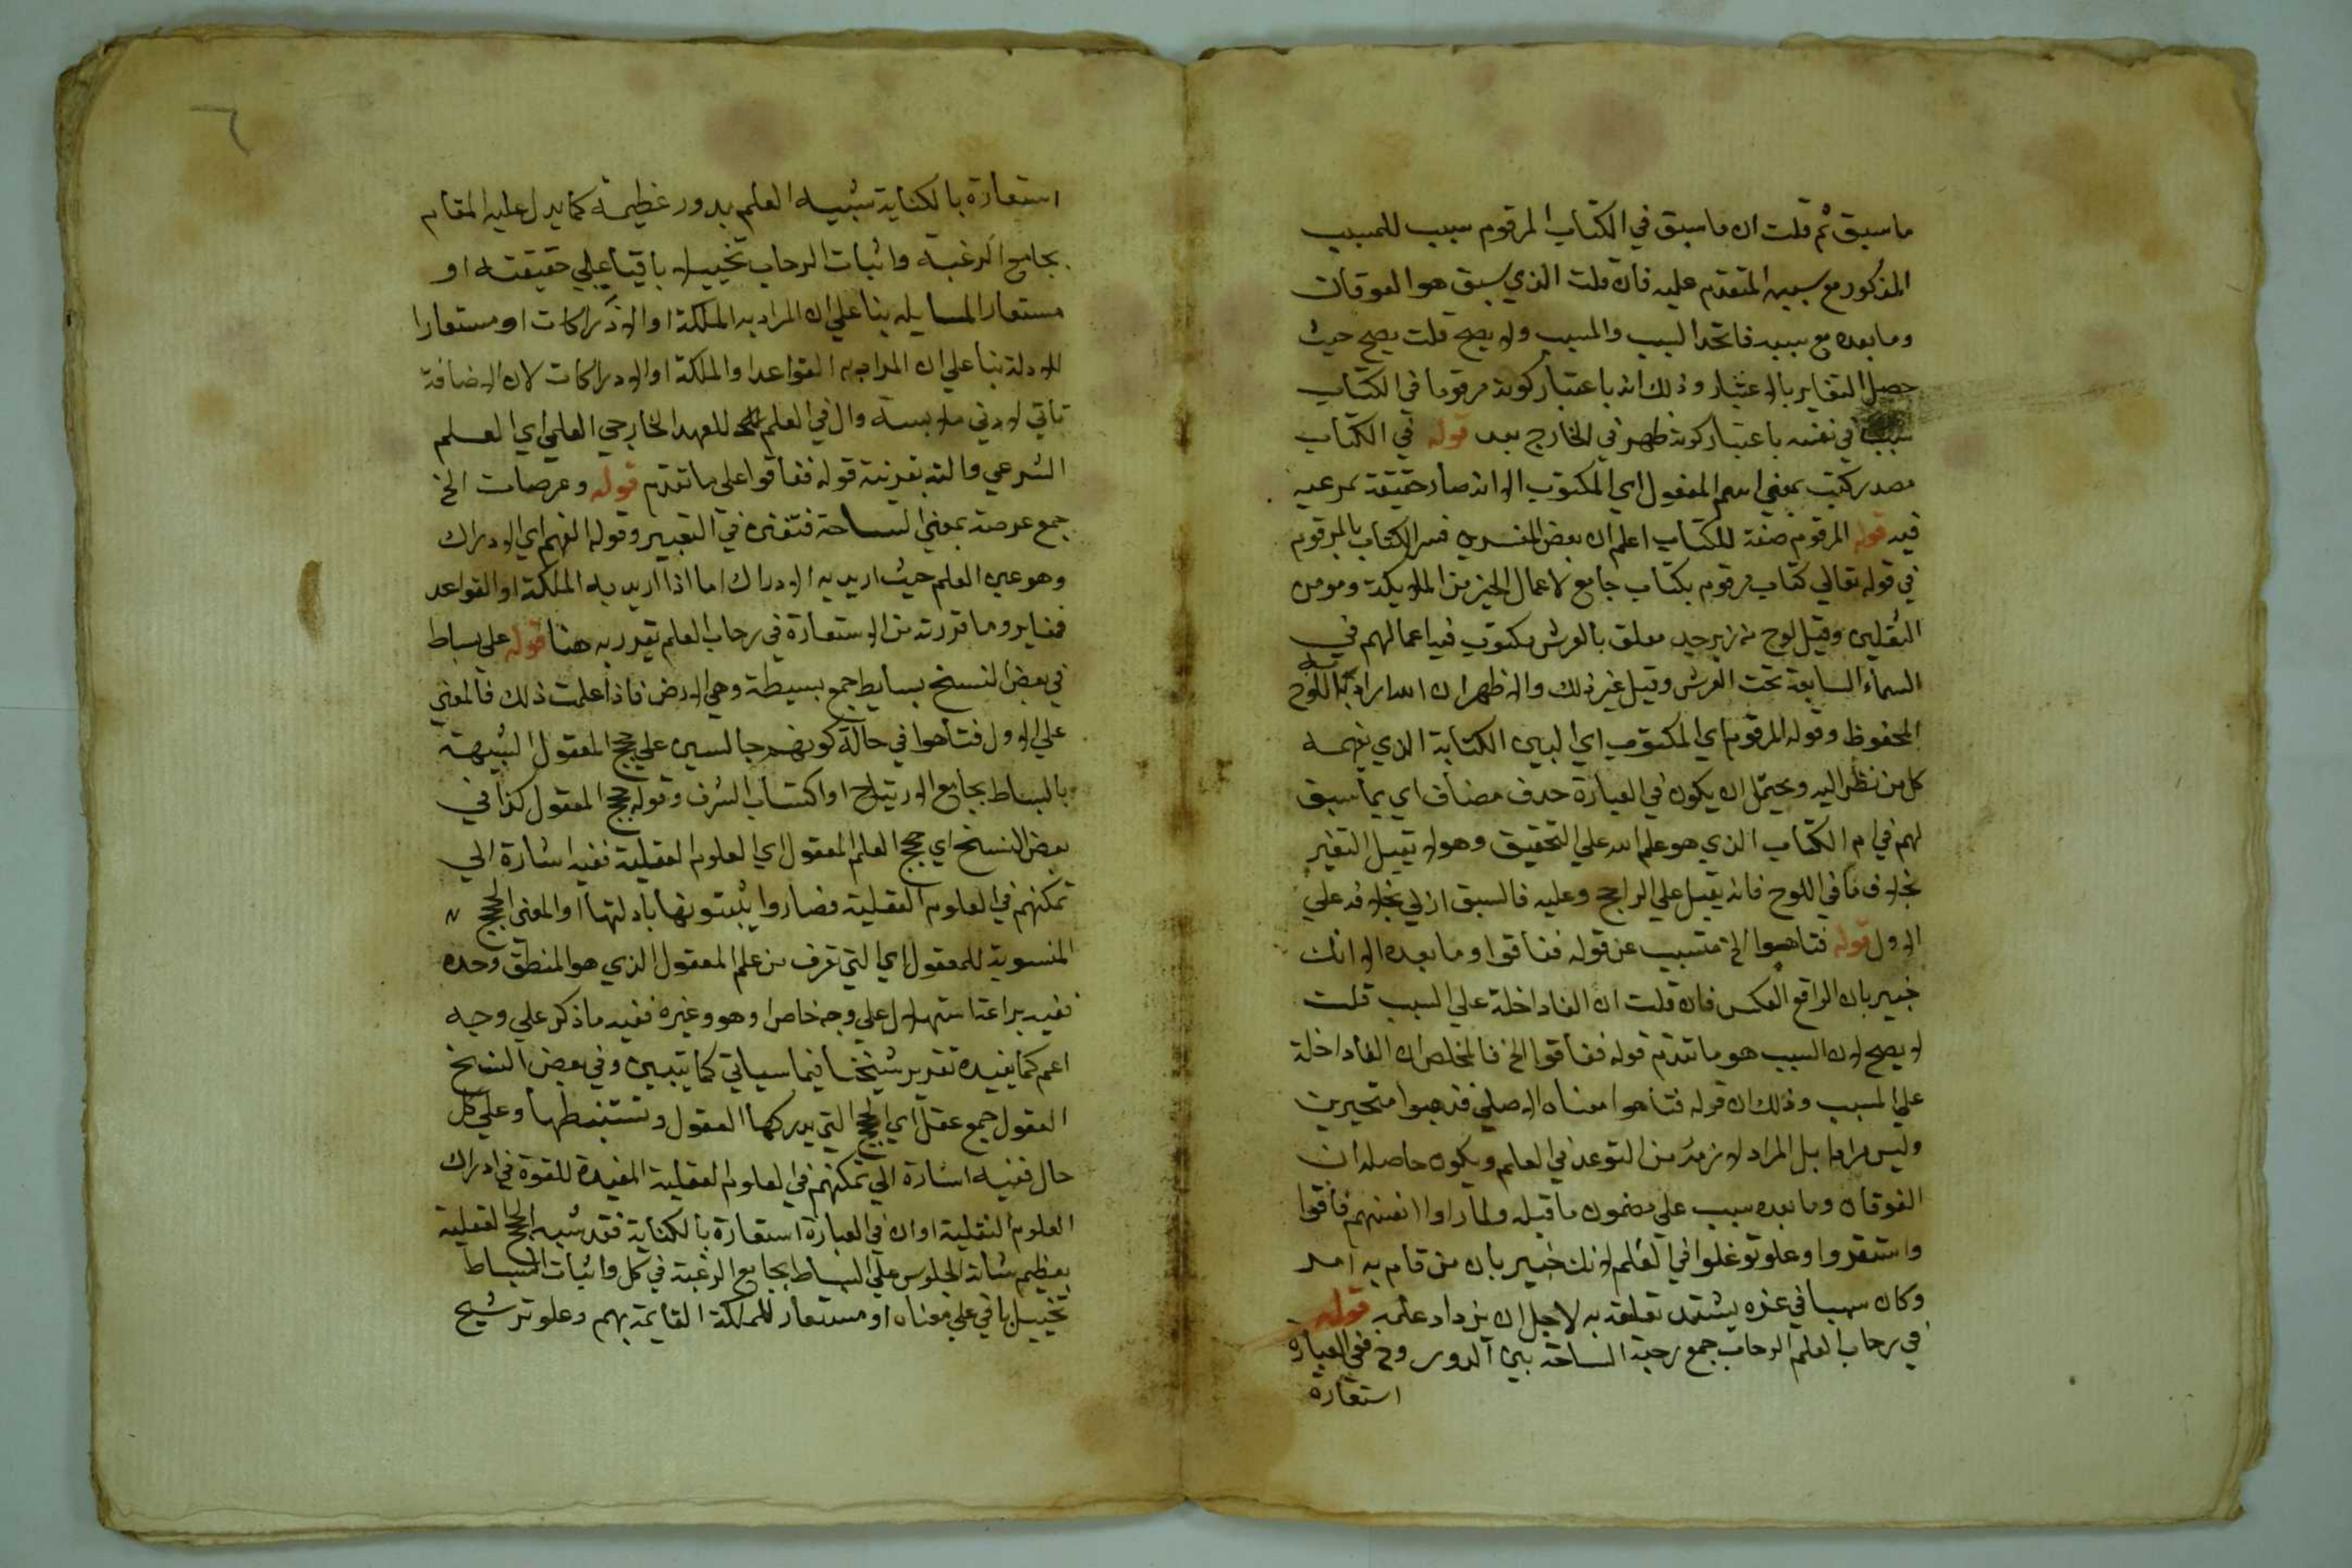 ما سبق ثم قلت ان ما سبق في الكتاب المرقوم سبب للمسبب
المذكور مع سببه المتقدم عليه فان قلت الذي سبق هو الفوقان
وما بعده مع سببه فاتحد السبب والمسبب ولا يصح قلت يصح حيث
حصل التغاير بالاعتبار وذلك انه باعتبار كونه مرقوما في الكتاب
سبب في نفسه باعتبار كونه ظهر في الخارج بعد قوله في الكتاب
مصدر كتب بمعنى اسم المفعول اي المكتوب الا انه صار حقيقة عرفية
فيه قوله المرقوم صفة للكتاب اعلم ان بعض المفسرين فسر الكتاب بالمرقوم
في قوله تعالي كتاب مرقوم بكتاب جامع لاعمال الخير من الملايكة ومومن
الثقلين وقيل لوح من زبرجد معلق بالعرش مكتوب فيه اعمالهم في
السماء السابعة تحت العرش وقيل غير ذلك والاظهر ان اراد به اللوح
المحفوظ وقوله المرقوم اي المكتوب اي البين الكتابة الذي يفهمه
كل من نظر اليه ويحتمل ان يكون في العبارة حذف مضاف اي بما سبق
لهم في ام الكتاب الذي هو علم الله علي التحقيق وهو لا يقبل التغير
بخلاف ما في اللوح فانه يقبل علي الراجح وعليه فالسبق ازلي بخلافه علي
الاول قوله فتاهوا الخ متسبب عن قوله ففاقوا وما بعده الا انك
خبير بان الواقع العكس فان قلت ان الفا داخلة علي السبب قلت
لا يصح لان السبب هو ما تقدم قوله ففاقوا الخ فالمخلص ان الفا داخلة
علي المسبب وذلك ان قوله فتاهوا معناه الاصلي فذهبوا متحيرين
وليس مرادا بل المراد لازمه من التوغل في العلم ويكون حاصله ان
الفوقان وما بعده سبب علي مضمون ما قبله ولما راوا انفسهم فاقوا
واستقروا وعلو توغلوا في العلم لانك خبير بان من قام به امر
وكان سببا في عزه يشتد تعلقه به لاجل ان يزداد علمه قوله
في رحاب العلم الرحاب جمع رحبة الساحة بين الدور وح ففي العبارة
استعارة
استعارة بالكناية تشبيه العلم بدور عظيمة كما يدل عليه المقام
بجامع الرغبة واثبات الرحاب تخييل باقيا علي حقيقته او
مستعار المسايله بنا علي ان المراد به الملكة او الادراكات او مستعارا
للادلة بنا علي ان المراد به القواعد او الملكة او الادراكات لان الاضافة
تاتي لادني ملابسة وال في العلم للعهد الخارجي العلمي اي العلم
الشرعي والته بقرينة قوله ففاقوا علي ما تقدم قوله وعرصات الخ
جمع عرصة بمعنى الساحة فتفنن في التعبير وقوله الفهم اي الادراك
وهو عين العلم حيث اريد به الادراك اما اذا اريد به الملكة او القواعد
فمغاير وما قررته من الاستعارة في رحاب العلم تقرر به هنا قوله علي بساط
في بعض النسخ بسايط جمع بسيطة وهي الارض فاذا علمت ذلك فالمعني
علي الاول فتاهوا في حالة كونهم جالسين علي حجج المعقول الشبيهة
بالبساط بجامع الارتياح او اكتساب الشرف وقوله حجج المعقول كذا في
بعض النسخ اي حجج العلم المعقول اي العلوم العقلية ففيه اشارة الي
تمكنهم في العلوم العقلية فصاروا يثبتونها بادلتها او المعني الحجج
المنسوبة للمعقول اي التي تعرف من علم المعقول الذي هو المنطق وحده
ففيه براعة استهلال علي وجه خاص او هو وغيره ففيه ما ذكر علي وجه
اعم كما يفيده تقرير شيخنا فيما سياتي كما يتبين وفي بعض النسخ
العقول جمع عقل اي الحجج التي يدركها العقول وتستنبطها وعلي كل
حال ففيه اشارة الي تمكنهم في العلوم العقلية المفيدة للقوة في ادراك
العلوم النقلية او ان في العبارة استعارة بالكناية فقد شبه الحجج العقلية
بعظيم شانه الجلوس علي البساط بجامع الرغبة في كل واثبات البساط
تخييل باقي علي معناه او مستعار للملكة القايمة بهم وعلو ترشيح